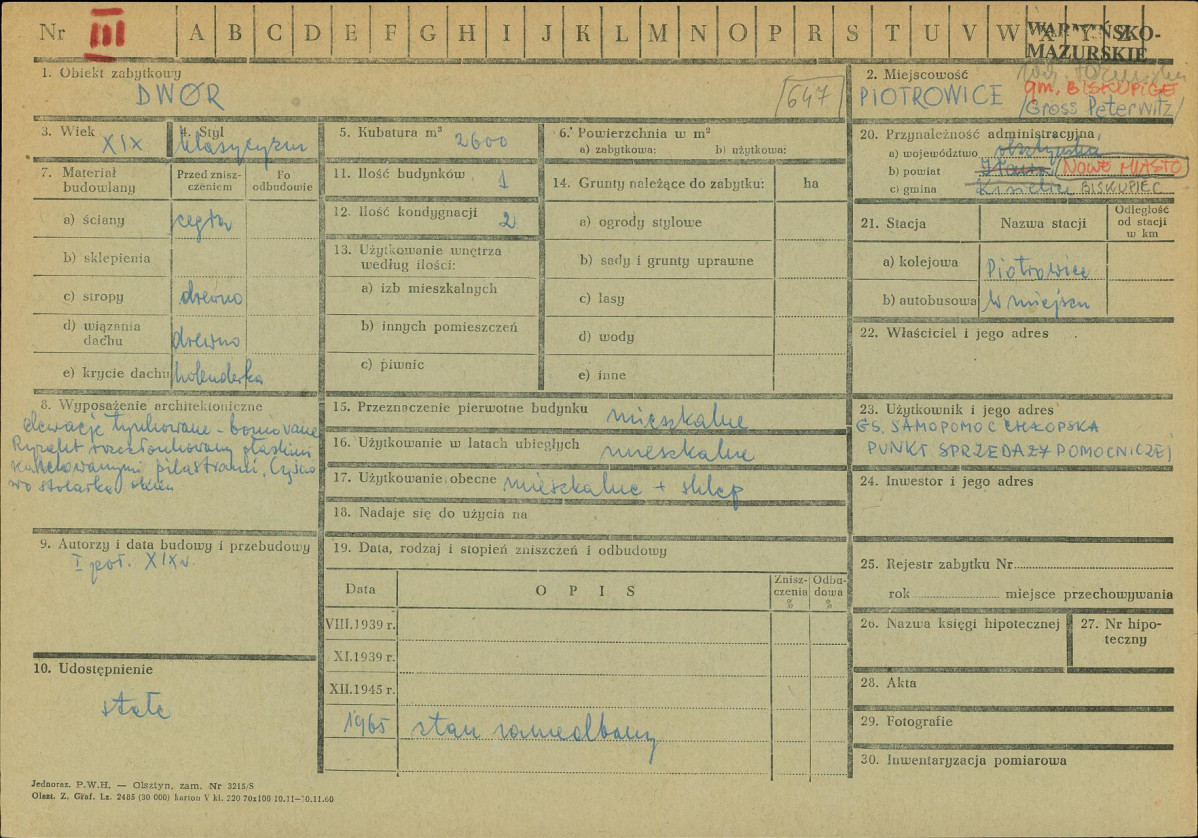 Nr III A B C D E F G H I J K L M N O P R S T U V W X Y Z
WARMIŃSKO-
MAZURSKIE
1. Obiekt zabytkowy
DWÓR
647
2. Miejscowość
gm. BISKUPIGE
PIOTROWICE /Gross Peterwitz/
3. Wiek
XIX
4. Styl
klasycyzm
5. Kubatura m³
2600
6. Powierzchnia w m²
a) zabytkowa: b) użytkowa:
7. Materiał
budowlany
Przed znisz-
czeniem
Po
odbudowie
a) ściany cegła
b) sklepienia
c) stropy drewno
d) wiązania
dachu drewno
e) krycie dachu holenderka
8. Wyposażenie architektoniczne
elewacje tynkowane - boniowane
Ryzalit rozczłonkowany płaskimi
kanelowanymi pilastrami. Częścio
wo stolarka okien
9. Autorzy i data budowy i przebudowy
I poł. XIX w.
10. Udostępnienie
stałe
11. Ilość budynków
1
12. Ilość kondygnacji
2
13. Użytkowanie wnętrza
według ilości:
a) izb mieszkalnych
b) innych pomieszczeń
c) piwnic
14. Grunty należące do zabytku: ha
a) ogrody stylowe
b) sady i grunty uprawne
c) lasy
d) wody
e) inne
15. Przeznaczenie pierwotne budynku mieszkalne
16. Użytkowanie w latach ubiegłych mieszkalne
17. Użytkowanie obecne mieszkalne + sklep
18. Nadaje się do użycia na
19. Data, rodzaj i stopień zniszczeń i odbudowy
Data
O P I S
Znisz-
czenia
%
Odbu-
dowa
%
VIII.1939 r.
XI.1939 r.
XII.1945 r.
1965 stan zaniedbany
20. Przynależność administracyjna
a) województwo olsztyńskie
b) powiat Iława NOWE MIASTO
c) gmina Kisielice BISKUPIEC
21. Stacja
Nazwa stacji
Odległość
od stacji
w km
a) kolejowa Piotrowice
b) autobusowa w miejscu
22. Właściciel i jego adres
23. Użytkownik i jego adres
GS. SAMOPOMOC CHŁOPSKA
PUNKT SPRZEDAŻY POMOCNICZEJ
24. Inwestor i jego adres
25. Rejestr zabytku Nr
rok miejsce przechowywania
26. Nazwa księgi hipotecznej
27. Nr hipo-
teczny
28. Akta
29. Fotografie
30. Inwentaryzacja pomiarowa
Jednoraz. P.W.H. — Olsztyn, zam. Nr 3215/S
Olszt. Z. Graf. Lz. 2485 (30 000) karton V kl. 220 70x100 10.11—10.11.60